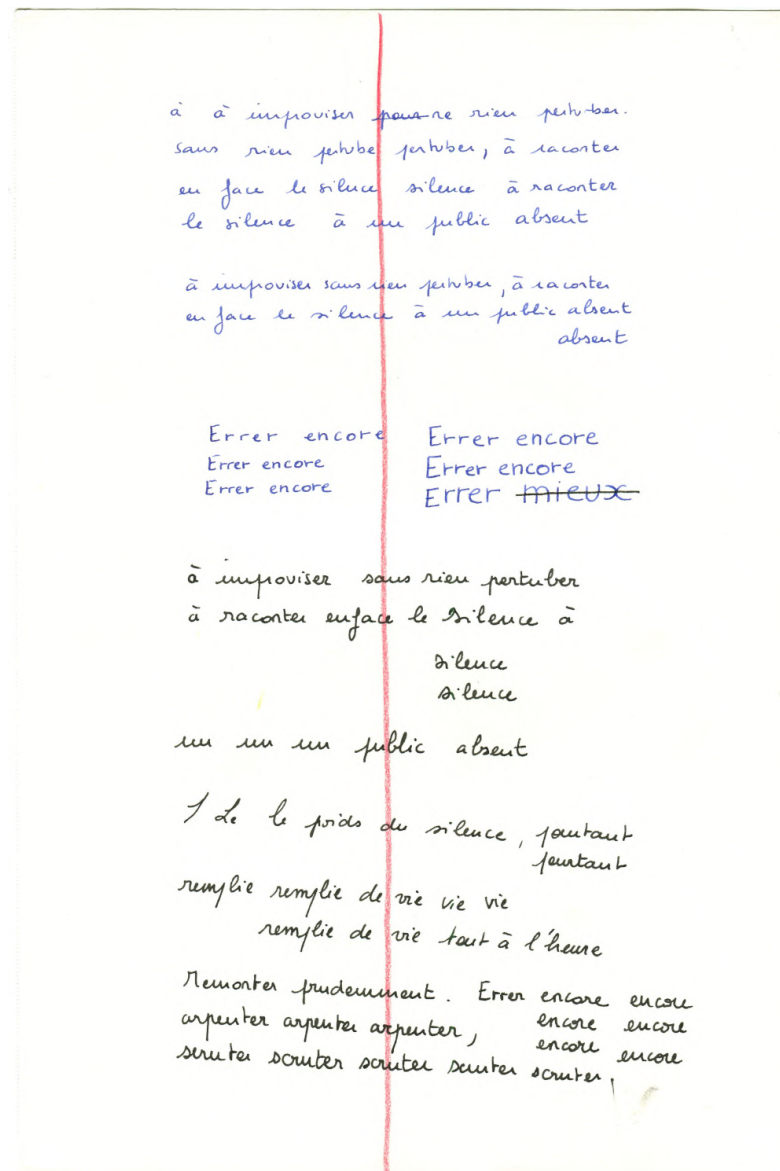 à à improviser pour ne rien pertuber.
sans rien pertube pertuber, à raconter
en face le silence silence à raconter
le silence à un public absent
à improviser sans rien pertuber, à raconter
en face le silence à un public absent
absent
Errer encore Errer encore
Errer encore Errer encore
Errer encore Errer mieux
à improviser sans rien pertuber
à raconter enface le silence à
silence
silence
un un un public absent
Le le poids du silence, pourtant
pourtant
remplie remplie de vie vie vie
remplie de vie tout à l'heure
Remonter prudemment. Errer encore encore
arpenter arpenter arpenter, encore encore
encore encore
scruter scruter scruter scruter scruter,